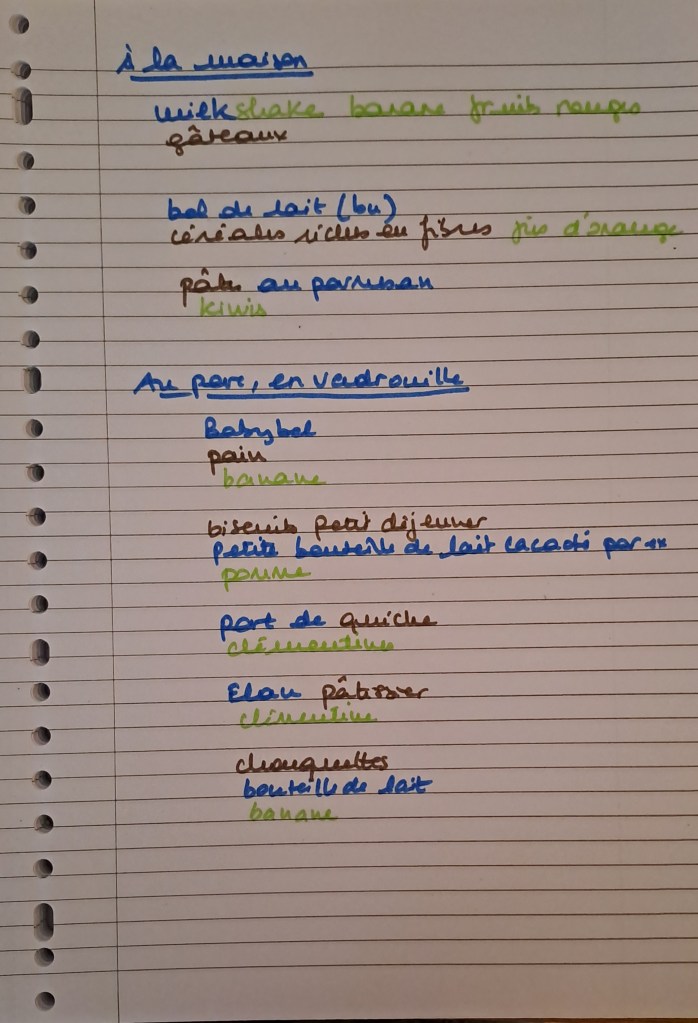 à la maison
milkshake banane fruits rouges
gâteaux
bol de lait (bu)
céréales riches en fibres jus d'orange
pâtes au parmesan
kiwis
Au parc, en vadrouille
Babybel
pain
banane
biscuits petit déjeuner
petite bouteille de lait cacaoté par ex
pomme
part de quiche
clémentine
Flan pâtissier
clémentine
chouquettes
bouteille de lait
banane